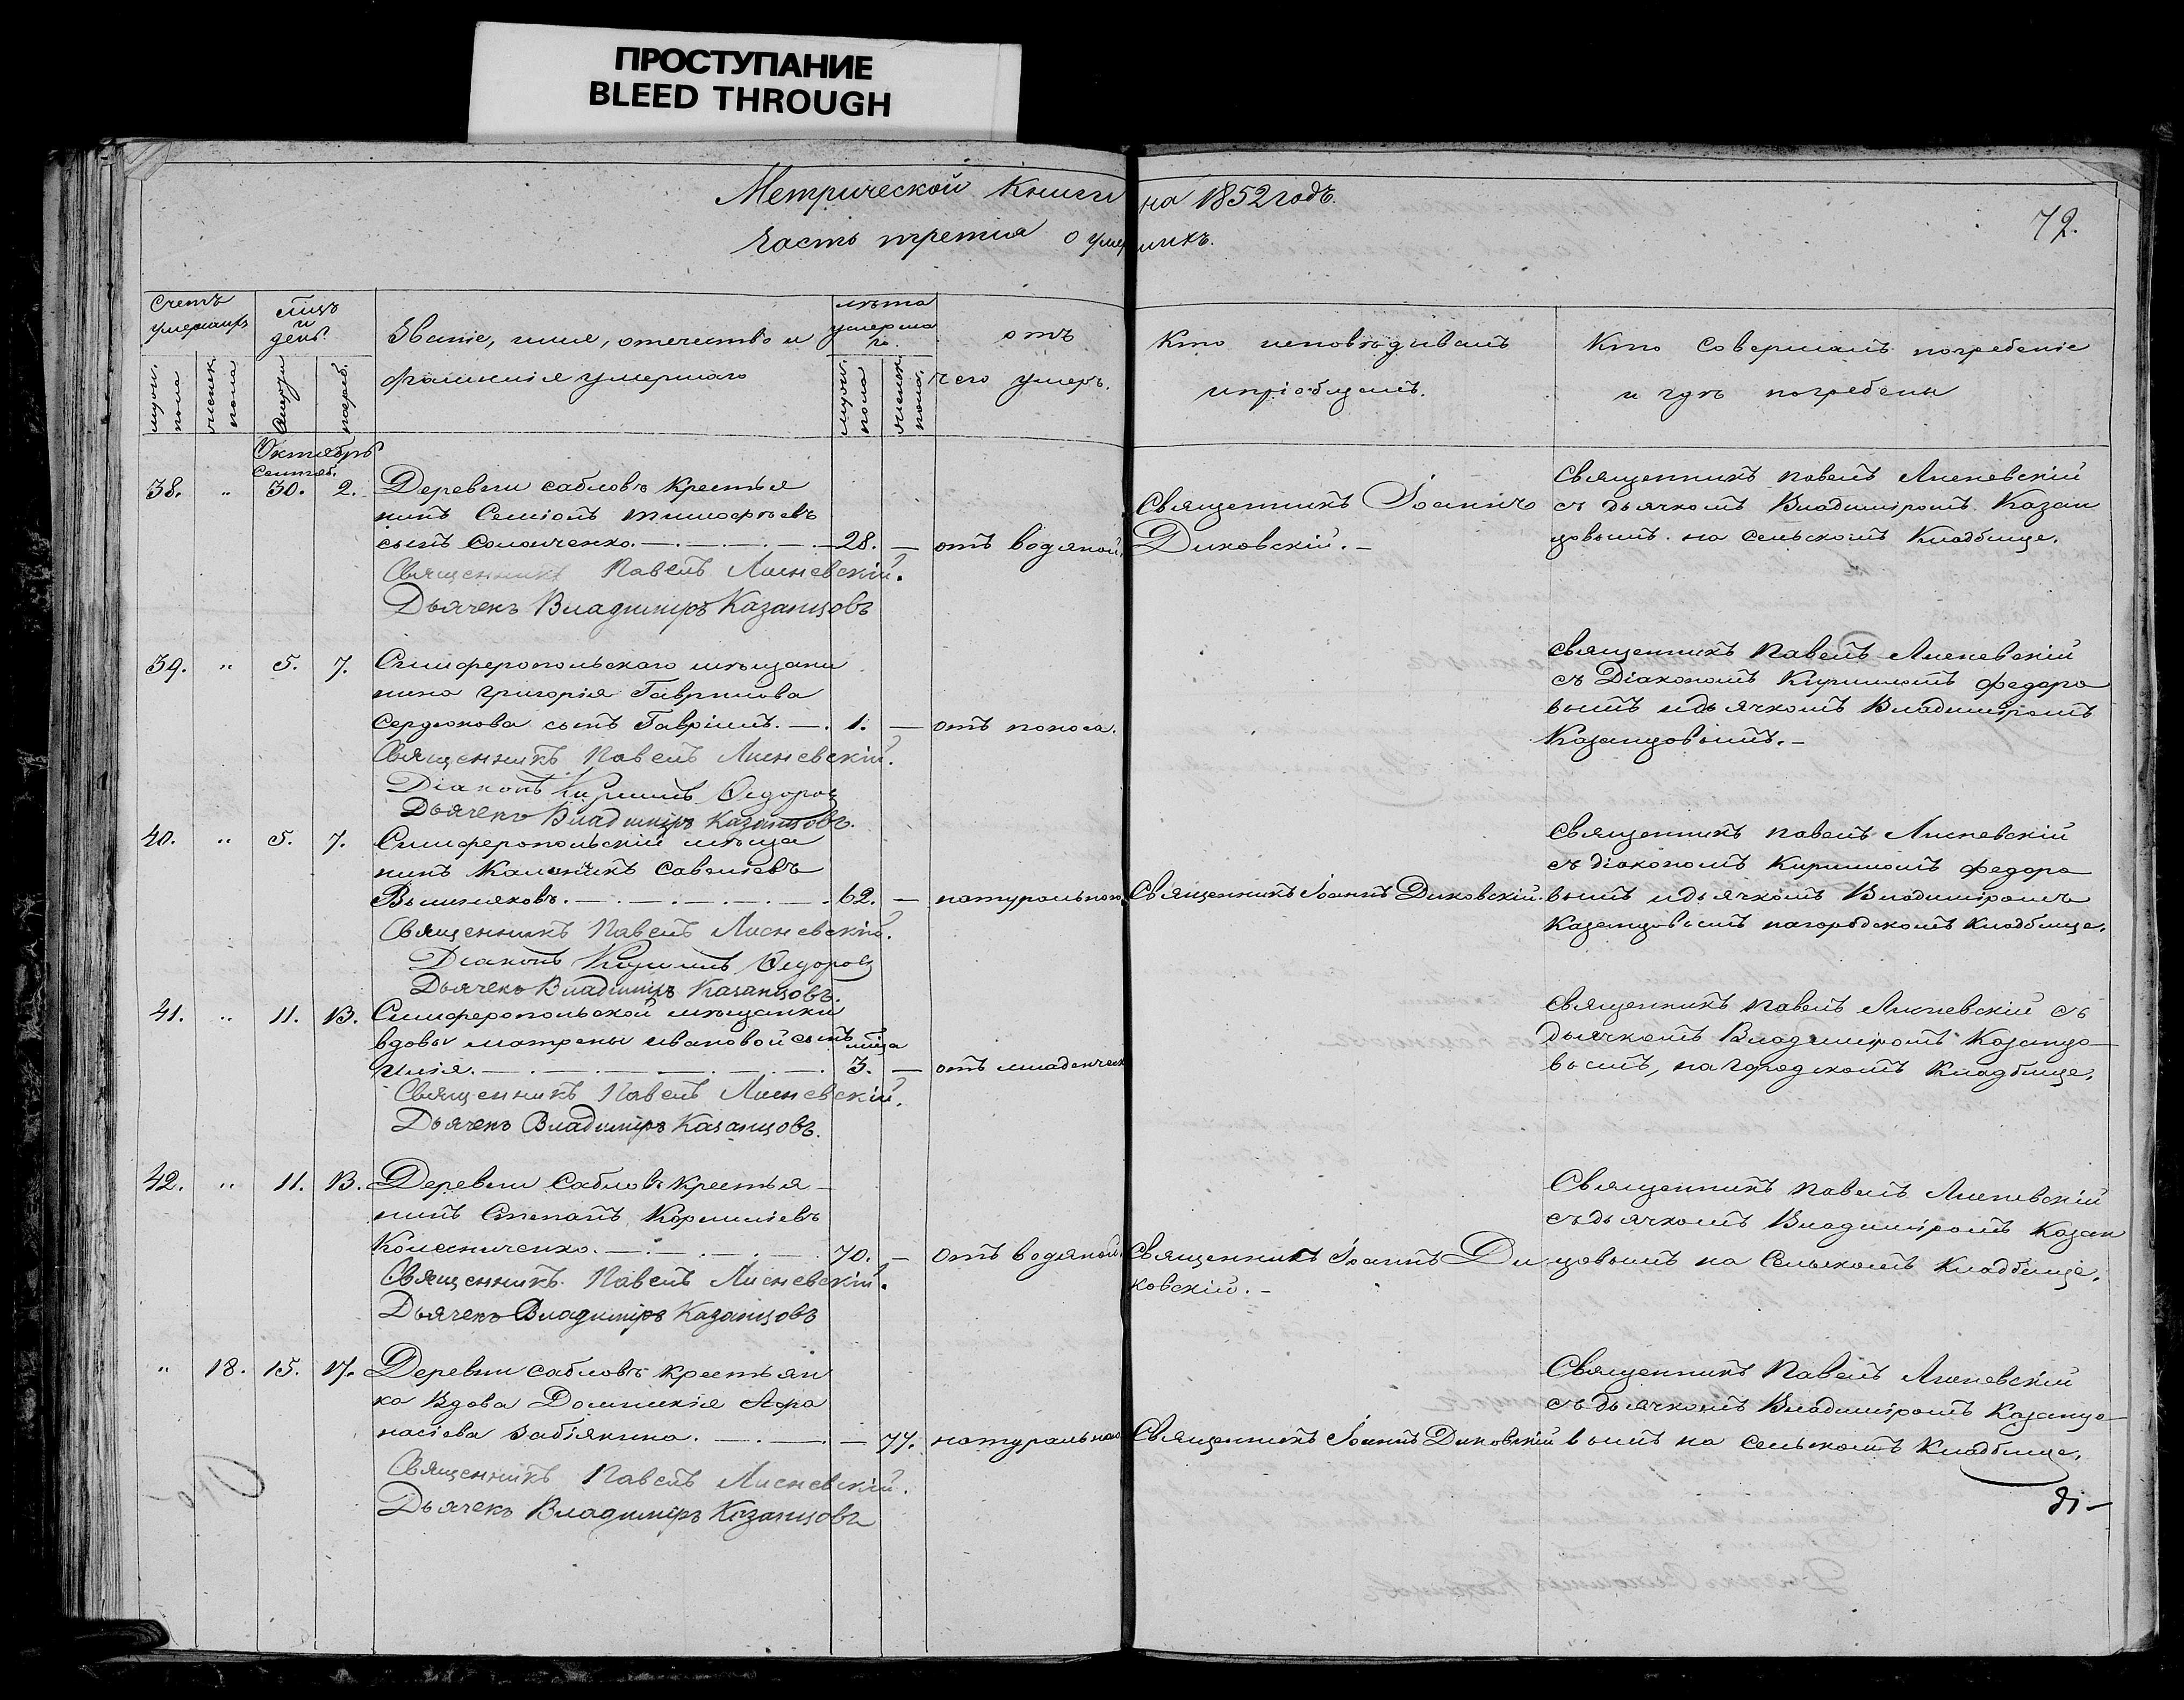 ПРОСТУПАНИЕ
BLEED THROUGH
Метрической Книги на 1852 годъ.
72.
Часть третия о умершихъ.
Счетъ умершихъ
мужск. пола
женск. пола
мѣсяцъ и день
погреб.
Званіе, имя, отечество и
фамилія умершаго
лѣта умершаго.
мужск. пола
женск. пола
отъ
чего умеръ.
Кто исповѣдывалъ
и пріобщалъ.
Кто совершалъ погребеніе
и гдѣ погребены
Октябрь
Сентяб.
38. " 30. 2. Деревни Сабловъ крестья
нинъ Семіонъ Тимофѣевъ
сынъ Соломченко. 28. — отъ водяной.
Священникъ Павелъ Лисневскій.
Дьячекъ Владиміръ Казанцовъ
Священникъ Іоаннъ
Диковскій. –
Священникъ Павелъ Лисневскій
съ дьячкомъ Владиміромъ Казан
цовымъ. на сельскомъ Кладбище.
39. " 5. 7. Симферопольского мѣщани
нина Григорія Гаврилова
Сердюкова сынъ Гавріилъ. —. 1. — отъ поноса.
Священникъ Павелъ Лисневскій.
Діаконъ Кириллъ Федоровъ
Дьячекъ Владиміръ Казанцовъ.
Священникъ Павелъ Лисневскій
съ Діакономъ Кирилломъ Федоро
вымъ и дьячкомъ Владиміромъ
Казанцовымъ. –
40. " 5. 7. Симферопольскій мѣща
нинъ Калиникъ Савеліевъ
62. — натурально
Священникъ Павелъ Лисневскій.
Діаконъ Кириллъ Федоровъ
Дьячекъ Владиміръ Казанцовъ.
Священникъ Іоаннъ Диковскій.
Священникъ Павелъ Лисневскій
съ діакономъ Кирилломъ Федоро
вымъ и дьячкомъ Владиміромъ
Казанцовымъ на городскомъ Кладбище.
41. " 11. 13. Симферопольской мѣщанки
вдовы Матрены Ивановой сынъ
мѣсца
3. — отъ младенческ
Священникъ Павелъ Лисневскій.
Дьячекъ Владиміръ Казанцовъ.
Священникъ Павелъ Лисневскій съ
дьячкомъ Владиміромъ Казанцо-
вымъ, на городскомъ Кладбище.
42. " 11. 13. Деревни Сабловъ крестья-
нинъ Степанъ Корниліевъ
Колесниченко. 70. — отъ водяной.
Священникъ Павелъ Лисневскій.
Дьячекъ Владиміръ Казанцовъ
Священникъ Іоаннъ Ди
ковскій. –
Священникъ Павелъ Лисневскій
съ дьячкомъ Владиміромъ Казан
цовымъ на Сельскомъ Кладбище.
" 18. 15. 17. Деревни Сабловъ крестьян
ка вдова Домникія Афа
насіева Забіякина. — 77. натурально
Священникъ Павелъ Лисневскій.
Дьячекъ Владиміръ Казанцовъ
Священникъ Іоаннъ Диковскій
Священникъ Павелъ Лисневскій
съ дьячкомъ Владиміромъ Казанцо-
вымъ на сельскомъ Кладбище.